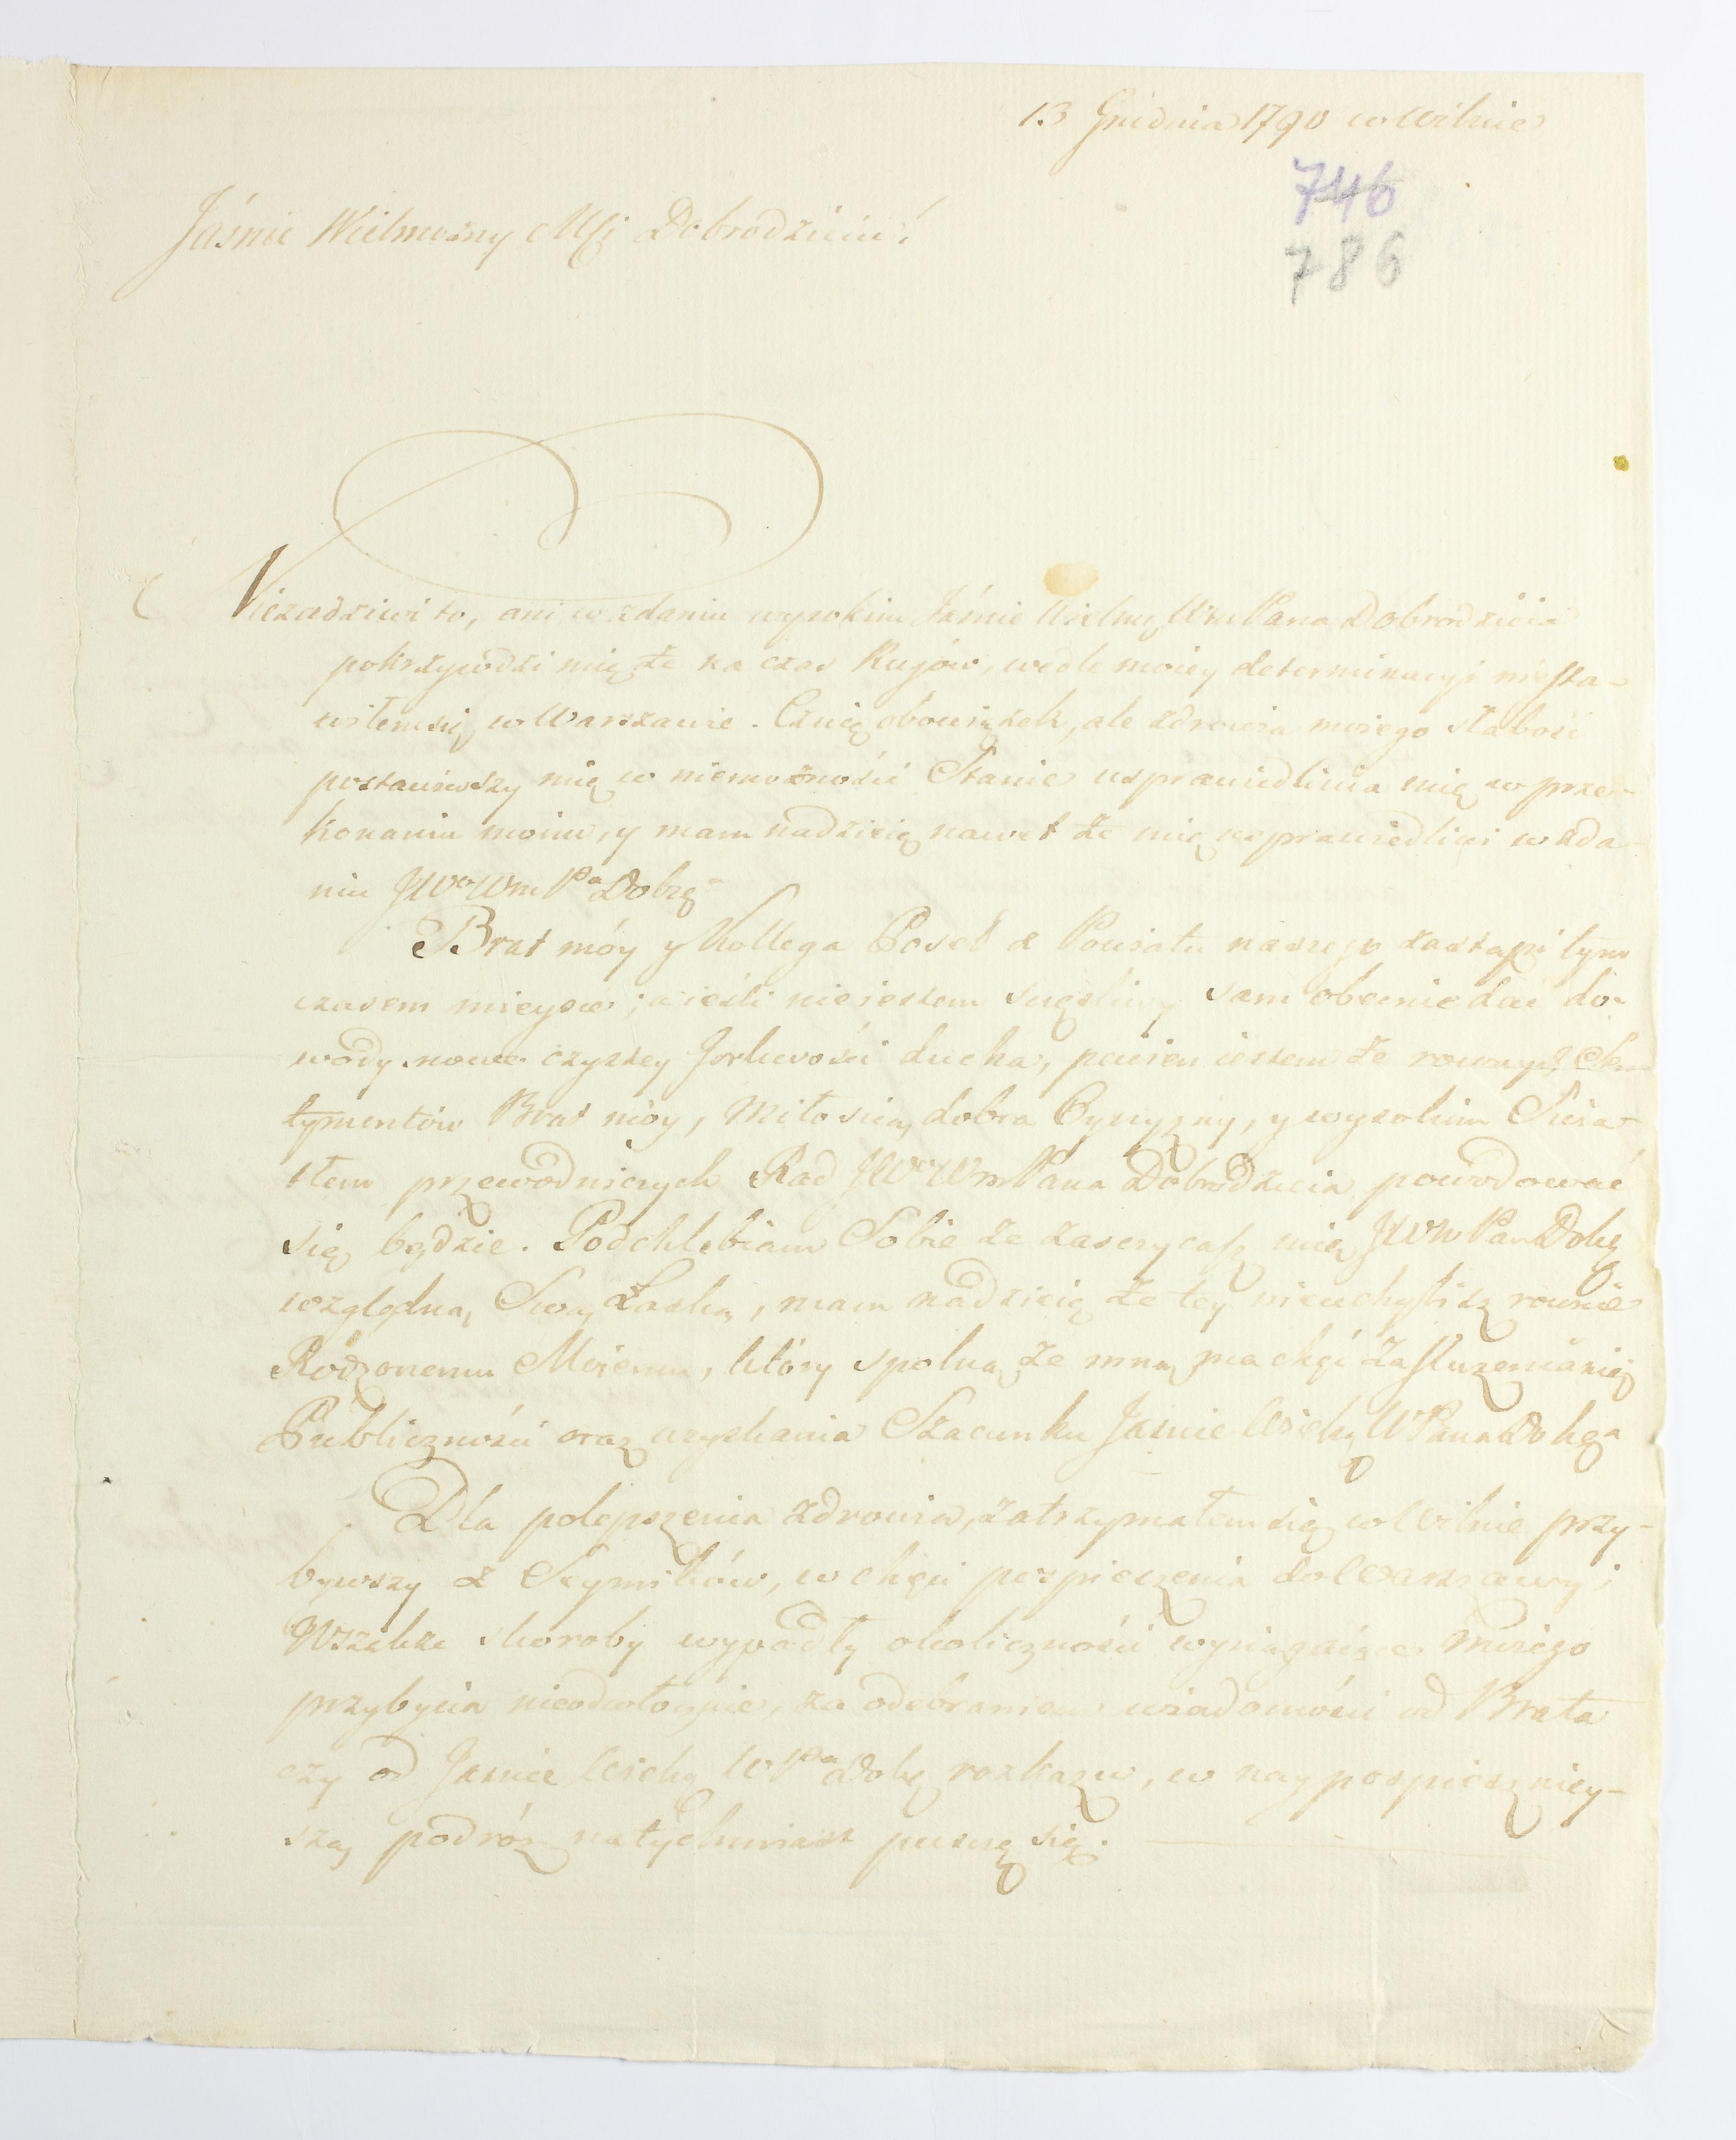 13 Grudnia 1790 w Wilnie
746
786
Jaśnie Wielmożny Mśi Dobrodzieiu!
Niezadziwi to, ani w zdaniu wysokim Jaśnie Wielmg WmPana Dobrodzieia
pokrzywdzi mię że na czas Rugów, wedle moiey determinacyi niesta-
wiłemsię w Warszawie. Czuię obowiązek, ale zdrowia moiego słabość
postawiwszy mię w niemożności Stanie usprawiedliwia mię w prze-
konaniu moim, y mam nadzieię nawet że mię usprawiedliwi w zda-
niu JWo WmPa Dobrg
Brat móy y Kollega Poseł z Powiatu naszego zastąpi tym
czasem mieysce; a ieśli nieiestem szczęśliwy sam obecnie dać do-
wody nowe czystey Gorliwości ducha, pewien iestem że rownych Sen
tymentów Brat móy, Miłością dobra Oyczyzny, y wysokim Świa-
tłem przewodniczych Rad JWo WmPana Dobrodzieia powodować
się będzie. Podchlebiam Sobie że zaszczycasz mię JWW Pan Dobg
względną Swą Łaską, mam nadzieię że tey nieuchylisz rownie
Rodzonemu Moiemu, który spolną ze mną ma chęć zasłużeniasię
Publiczności oraz uzyskania Szacunku Jaśnie Wielg WPana Dobga
Dla polepszenia zdrowia, zatrzymałem się w Wilnie przy-
bywszy z Seymików, w chęci pospieszenia do Warszawy;
Wszakże skoroby wypadły okoliczności wyciągaiące moiego
przybycia nieodwłocznie, za odebraniem wiadomości od Brata
czy od Jaśnie Wielg WPa Dobg rozkazu, w nayspospieszniey-
szą podróż natychmiast puszczę się.